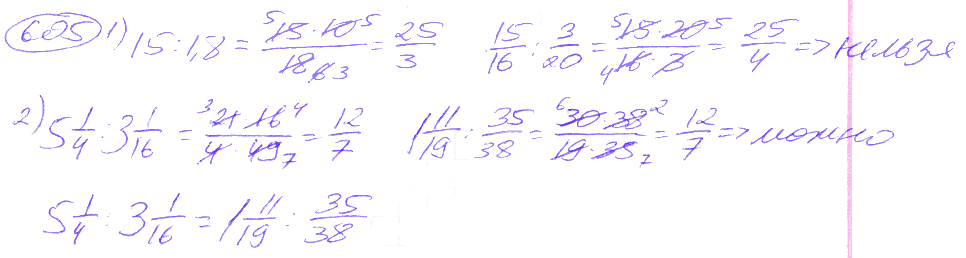 605 1) 15 : 1,8 = 15·10/18 = 25/3   15/16 : 3/20 = 15·20/16·3 = 25/4 => нельзя
2) 5 1/4 : 3 1/16 = 21·16/4·49 = 12/7   1 11/19 : 35/38 = 30·38/19·35 = 12/7 => можно
5 1/4 : 3 1/16 = 1 11/19 : 35/38